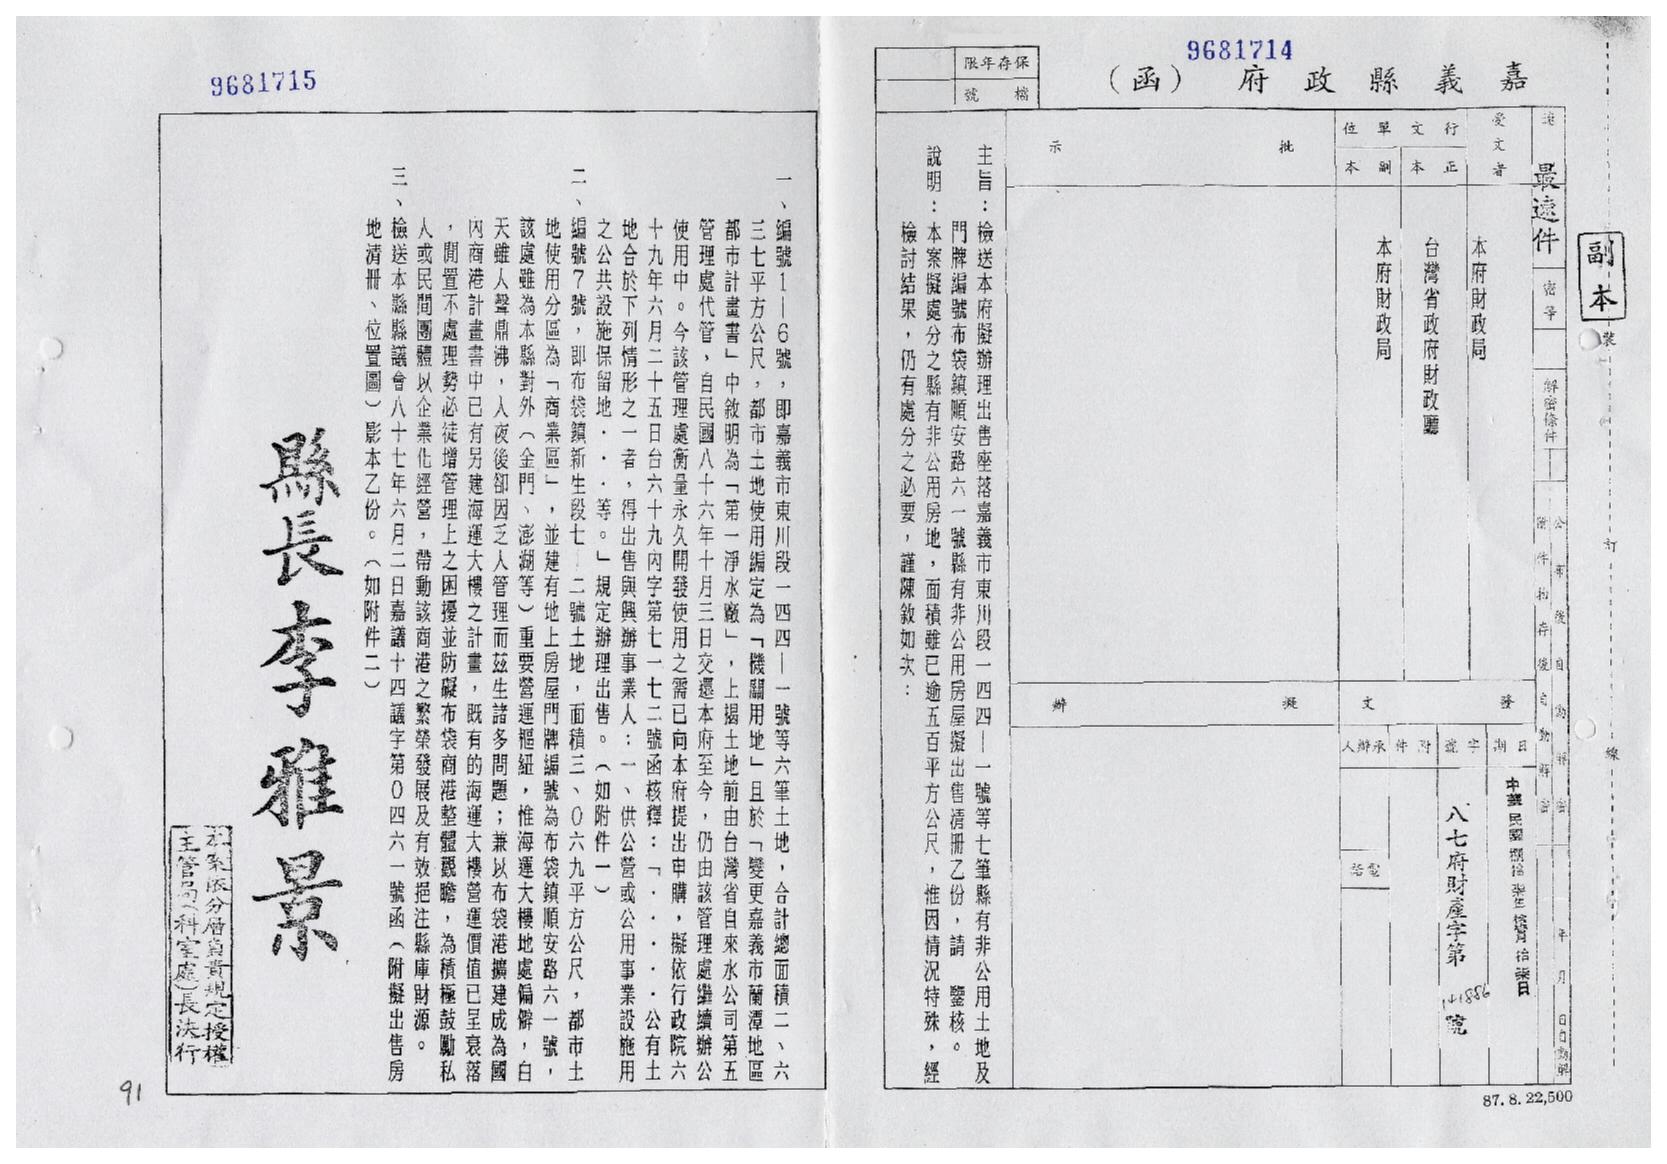 9681714
嘉義縣政府（函）
保存年限
檔號
副本
速
最速件
密等
解密條件
公布後自動解密
附件抽存後自動解密
年月日自動解
裝
訂
線
受文者
本府財政局
行文單位
正本
台灣省政府財政廳
副本
本府財政局
發文
日期
中華民國捌拾柒年拾月拾柒日
字號
八七府財產字第141886號
附件
承辦人
電話
批示
擬辦
主旨：檢送本府擬辦理出售座落嘉義市東川段一四四—一號等七筆縣有非公用土地及
門牌編號布袋鎮順安路六一號縣有非公用房屋擬出售清冊乙份，請　鑒核。
說明：本案擬處分之縣有非公用房地，面積雖已逾五百平方公尺，惟因情況特殊，經
檢討結果，仍有處分之必要，謹陳敘如次：
87.8.22,500
9681715
一、編號1—6號，即嘉義市東川段一四四—一號等六筆土地，合計總面積二、六
三七平方公尺，都市土地使用編定為「機關用地」且於「變更嘉義市蘭潭地區
都市計畫書」中敘明為「第一淨水廠」，上揭土地前由台灣省自來水公司第五
管理處代管，自民國八十六年十月三日交還本府至今，仍由該管理處繼續辦公
使用中。今該管理處衡量永久開發使用之需已向本府提出申購，擬依行政院六
十九年六月二十五日台六十九內字第七一七二號函核釋：「．．．．．公有土
地合於下列情形之一者，得出售與興辦事業人：一、供公營或公用事業設施用
之公共設施保留地．．．等。」規定辦理出售。（如附件一）
二、編號7號，即布袋鎮新生段七—二號土地，面積三、0六九平方公尺，都市土
地使用分區為「商業區」，並建有地上房屋門牌編號為布袋鎮順安路六一號，
該處雖為本縣對外（金門、澎湖等）重要營運樞紐，惟海運大樓地處偏僻，白
天雖人聲鼎沸，入夜後卻因乏人管理而茲生諸多問題；兼以布袋港擴建成為國
內商港計畫書中已有另建海運大樓之計畫，既有的海運大樓營運價值已呈衰落
，閒置不處理勢必徒增管理上之困擾並防礙布袋商港整體觀瞻，為積極鼓勵私
人或民間團體以企業化經營，帶動該商港之繁榮發展及有效挹注縣庫財源。
三、檢送本縣縣議會八十七年六月二日嘉議十四議字第0四六一號函（附擬出售房
地清冊、位置圖）影本乙份。（如附件二）
縣長李雅景
本案依分層負責規定授權
主管局（科室處）長決行
91